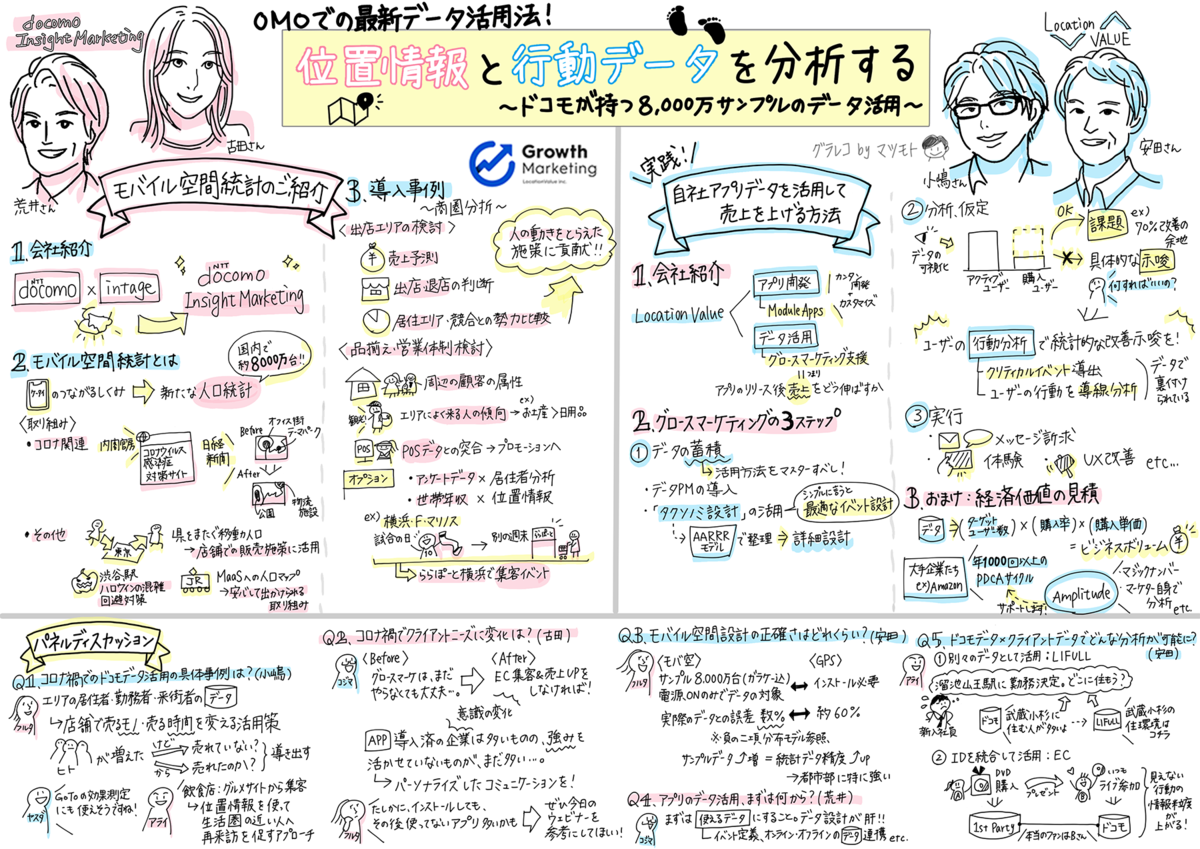 docomo
Insight Marketing
OMOでの最新データ活用法!
位置情報と行動データを分析する
〜ドコモが持つ8,000万サンプルのデータ活用〜
Location
VALUE
荒井さん
古田さん
小嶋さん
安田さん
グラレコ by マツモト
Growth
Marketing
LocationValue Inc.
モバイル空間統計のご紹介
1. 会社紹介
docomo × intage
NTT
docomo
Insight Marketing
2. モバイル空間統計とは
国内で
約8000万台!!
ケータイ
のつながるしくみ
新たな人口統計
〈取り組み〉
・コロナ関連
内閣官房
コロナウイルス
感染症
対策サイト
日経
新聞
Before
オフィス街
テーマパーク
After
公園
物流
施設
・その他
東京
県をまたぐ移動の人口
→店舗での販売施策に活用
渋谷駅
ハロウィンの混雑
回避対策
JR
MaaSへの人口マップ
→安心して出かけられる
取り組み
3. 導入事例
〜商圏分析〜
〈出店エリアの検討〉
人の動きをとらえた
施策に貢献!!
売上予測
出店・退店の判断
居住エリア・競合との勢力比較
〈品揃え・営業体制検討〉
周辺の顧客の属性
観光
エリアによく来る人の傾向
ex)
→お土産>日用品
POS
POSデータとの突合→プロモーションへ
オプション
・アンケートデータ×居住者分析
・世帯年収×位置情報
ex)
横浜・F・マリノス
試合の日
→別の週末
ららぽーと
→ららぽーと横浜で集客イベント
実践!
自社アプリデータを活用して
売上を上げる方法
1. 会社紹介
Location Value
アプリ開発
ModuleApps
カンタン
開発
カスタマイズ
データ活用
グロースマーケティング支援
つまり
アプリのリリース後売上をどう伸ばすか
2. グロースマーケティングの3ステップ
① データの蓄積
→活用方法をマスターすべし!
・データPMの導入
・「タクソノミ設計」の活用
シンプルに言うと
最適なイベント設計
AARRR
モデル
で整理⇒詳細設計
② 分析、仮定
データの
可視化
アクティブ
ユーザー
購入
ユーザー
OK
課題
ex)
70%改善の
余地
具体的な示唆
何すればいいの?
ユーザーの行動分析で統計的な改善示唆を!
クリティカルイベント導出
ユーザーの行動を導線分析
データで
裏付け
られている
③ 実行
・メッセージ訴求
・体験
・UX改善 etc...
3. おまけ:経済価値の見積
データ⇒(ターゲットユーザー数)×(購入率)×(購入単価)
=ビジネスボリューム
大手企業たち
ex)Amazon
年1000回以上の
PDCAサイクル
サポートします!
Amplitude
・マジックナンバー
・マーケター自身で
分析
etc
パネルディスカッション
Q1. コロナ禍でのドコモデータ活用の具体事例は?(小嶋)
フルタ
エリアの居住者・勤務者・来街者のデータ
→店舗で売るモノ・売る時間を変える活用策
ヒト
が増えた
けど
売れていない?
から
売れたのか?
導き出す
ヤスダ
GoToの効果測定
にも使えそうですね!
アライ
飲食店:グルメサイトから集客
→位置情報を使って
生活圏の近い人へ
再来訪を促すアプローチ
Q2. コロナ禍でクライアントニーズに変化は?(古田)
コジマ
〈Before〉
グロースマーケは、まだ
やらなくても大丈夫...。
〈After〉
EC集客&売上UPを
しなければ!
意識の変化
APP 導入済の企業は多いものの、強みを
活かせていないものが、まだ多い...。
→パーソナライズしたコミュニケーションを!
フルタ
たしかに、インストールしても、
その後使ってないアプリ多いかも
ぜひ今日の
ウェビナーを
参考にしてほしい!
Q3. モバイル空間設計の正確さはどれくらい?(安田)
フルタ
〈モバ空〉
サンプル8,000万台(ガラケー込)
電源ONのみでデータの対象
〈GPS〉
インストール必要
実際のデータとの誤差 数%
約60%
※負の二項分布モデル参照、
サンプルデータ増=統計データ精度up
→都市部に特に強い
Q4. アプリのデータ活用、まずは何から?(荒井)
コジマ
まずは使えるデータにすること。データ設計が肝!!
イベント定義、オンライン・オフラインのデータ連携etc.
Q5. ドコモデータ×クライアントデータでどんな分析が可能に?
(安田)
アライ
① 別々のデータとして活用:LIFULL
溜池山王駅に勤務決定。どこに住もう?
新入社員
ドコモ
武蔵小杉に
住む人が多いよ
LIFULL
武蔵小杉の
住環境は
コチラ
② IDを統合して活用:EC
DVD
購入
プレゼント
いつも
ライブ参加
1st Party
本当のファンはBさん
ドコモ
見えない
行動の
情報精度
が
上がる!